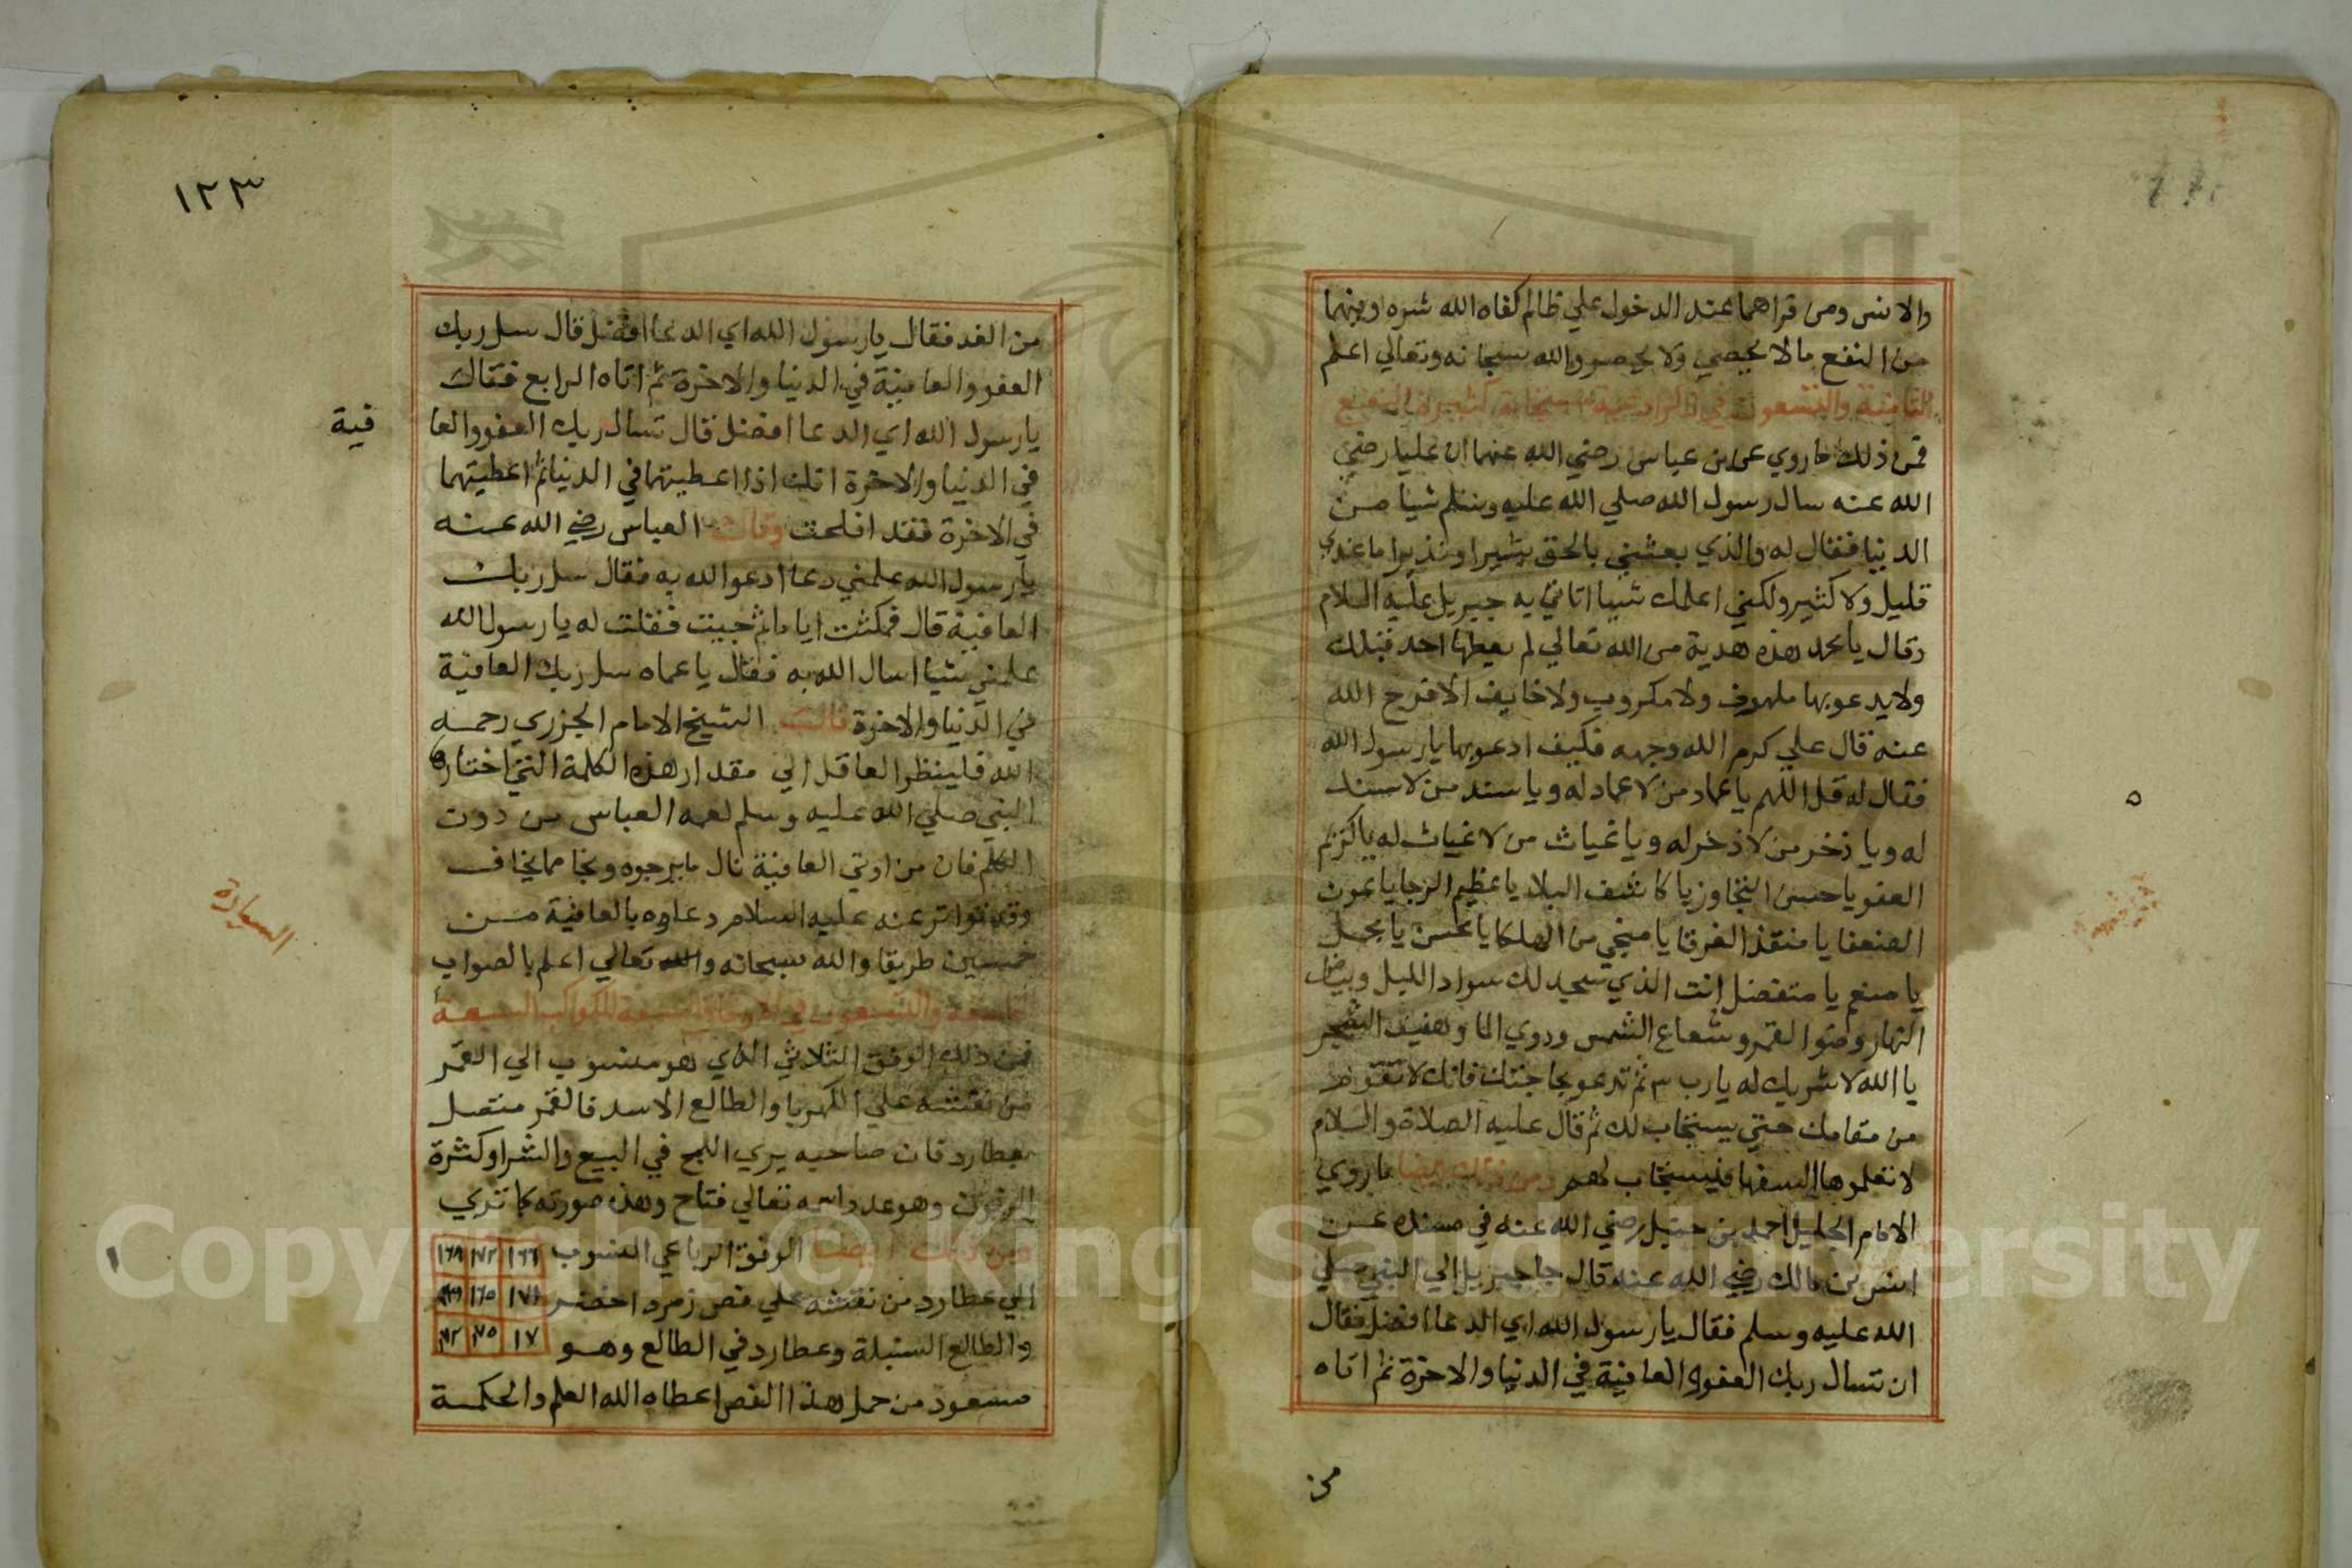 والانس ومن قراهما عند الدخول علي ظالم كفاه الله شره وفيهما
من النفع ما لا يحصي ولا يحصر والله سبحانه وتعالي اعلم
الثامنة والتسعون في
فمن ذلك ما روي عن بن عباس رضي الله عنهما ان عليا رضي
الله عنه سال رسول الله صلي الله عليه وسلم شيا من
الدنيا فقال له والذي بعثني بالحق بشيرا ونذيرا ما عندي
قليل ولا كثير ولكني اعلمك شيا اتاني به جبريل عليه السلام
وقال يا محمد هذه هدية من الله تعالي لم يعطها احد قبلك
ولا يدعو بها ملهوف ولا مكروب ولا خايف الا فرج الله
عنه قال علي كرم الله وجهه فكيف ادعو بها يا رسول الله
فقال له قل اللهم يا عماد من لا عماد له ويا سند من لا سند
له ويا ذخر من لا ذخر له ويا غياث من لا غياث له يا كريم
العفو يا حسن التجاوز يا كاشف البلا يا عظيم الرجا يا عون
الضعفا يا منقذ الغرقا يا منجي من الهلكا يا محسن يا مجمل
يا منعم يا متفضل انت الذي سجد لك سواد الليل وبياض
النهار وضوا القمر وشعاع الشمس ودوي الما وهفيف الشجر
يا الله لا شريك له يا رب ٣ ثم تدعو بحاجتك فانك لا تقوم
من مقامك حتي يستجاب لك ثم قال عليه الصلاة والسلام
لا تعلموها السفها فيستجاب لهم ومن ذلك ايضا ما روي
الامام الجليل احمد بن حنبل رضي الله عنه في مسنده عن
انس بن مالك رضي الله عنه قال جا جبريل الي النبي صلي
الله عليه وسلم فقال يا رسول الله اي الدعا افضل فقال
ان تسال ربك العفو والعافية في الدنيا والاخرة ثم اتاه
من
١٢٣
من الغد فقال يا رسول الله اي الدعا افضل قال سل ربك
العفو والعافية في الدنيا والاخرة ثم اتاه الرابع فقال
يا رسول الله اي الدعا افضل قال تسال ربك العفو والعا
فية
في الدنيا والاخرة انك اذا اعطيتهما في الدنيا ثم اعطيتهما
في الاخرة فقد افلحت وقال العباس رضي الله عنه
يا رسول الله علمني دعا ادعوا الله به فقال سل ربك
العافية قال فمكثت اياما ثم جيت فقلت له يا رسول الله
علمني شيا اسال الله به فقال يا عماه سل ربك العافية
في الدنيا والاخرة قال الشيخ الامام الجزري رحمه
الله فلينظر العاقل الي مقدار هذه الكلمة التي اختارها
النبي صلي الله عليه وسلم لعمه العباس من دون
الكلم فان من اوتي العافية نال ما يرجوه ونجا مما يخاف
وقد تواتر عنه عليه السلام دعاوه بالعافية من
خمسين طريقا والله سبحانه والله تعالي اعلم بالصواب
التاسعة والتسعون في الاوفاق السبعة للكواكب السبعة
السيارة
فمن ذلك الوفق الثلاثي الذي هو منسوب الي القمر
من نقشه علي الكهربا والطالع الاسد فالقمر متصل
بعطارد فان صاحبه يري النجح في البيع والشرا وكثرة
الزبون وهو عدد اسمه تعالي فتاح وهذه صورته كما تري
ومن ذلك ايضا الوفق الرباعي المنسوب
الي عطارد من نقشه علي فص زمرد اخضر
والطالع السنبلة وعطارد في الطالع وهو
مسعود من حمل هذا الفص اعطاه الله العلم والحكمة